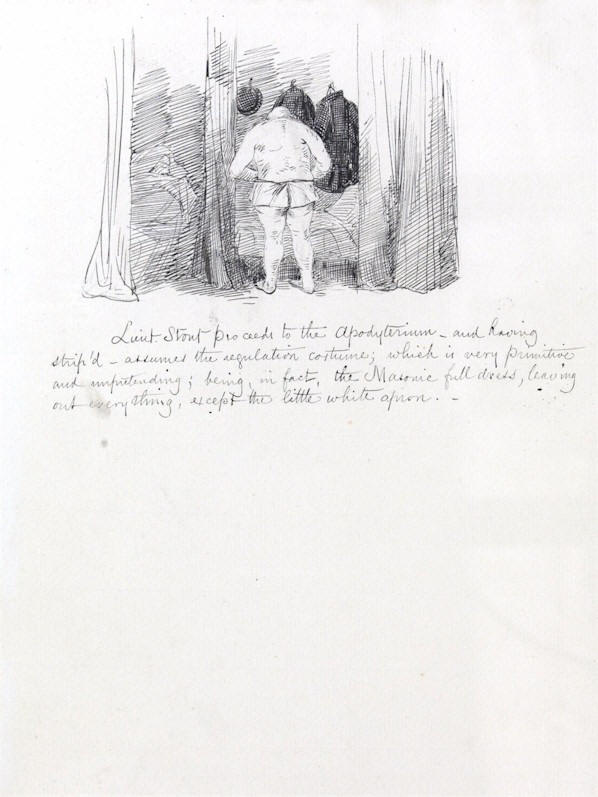 Lieut Stout proceeds to the Apodyterium - and having
strip'd - assumes the regulation costume; which is very primitive
and unpretending; being, in fact, the Masonic full dress, leaving
out everything, except the little white apron. -